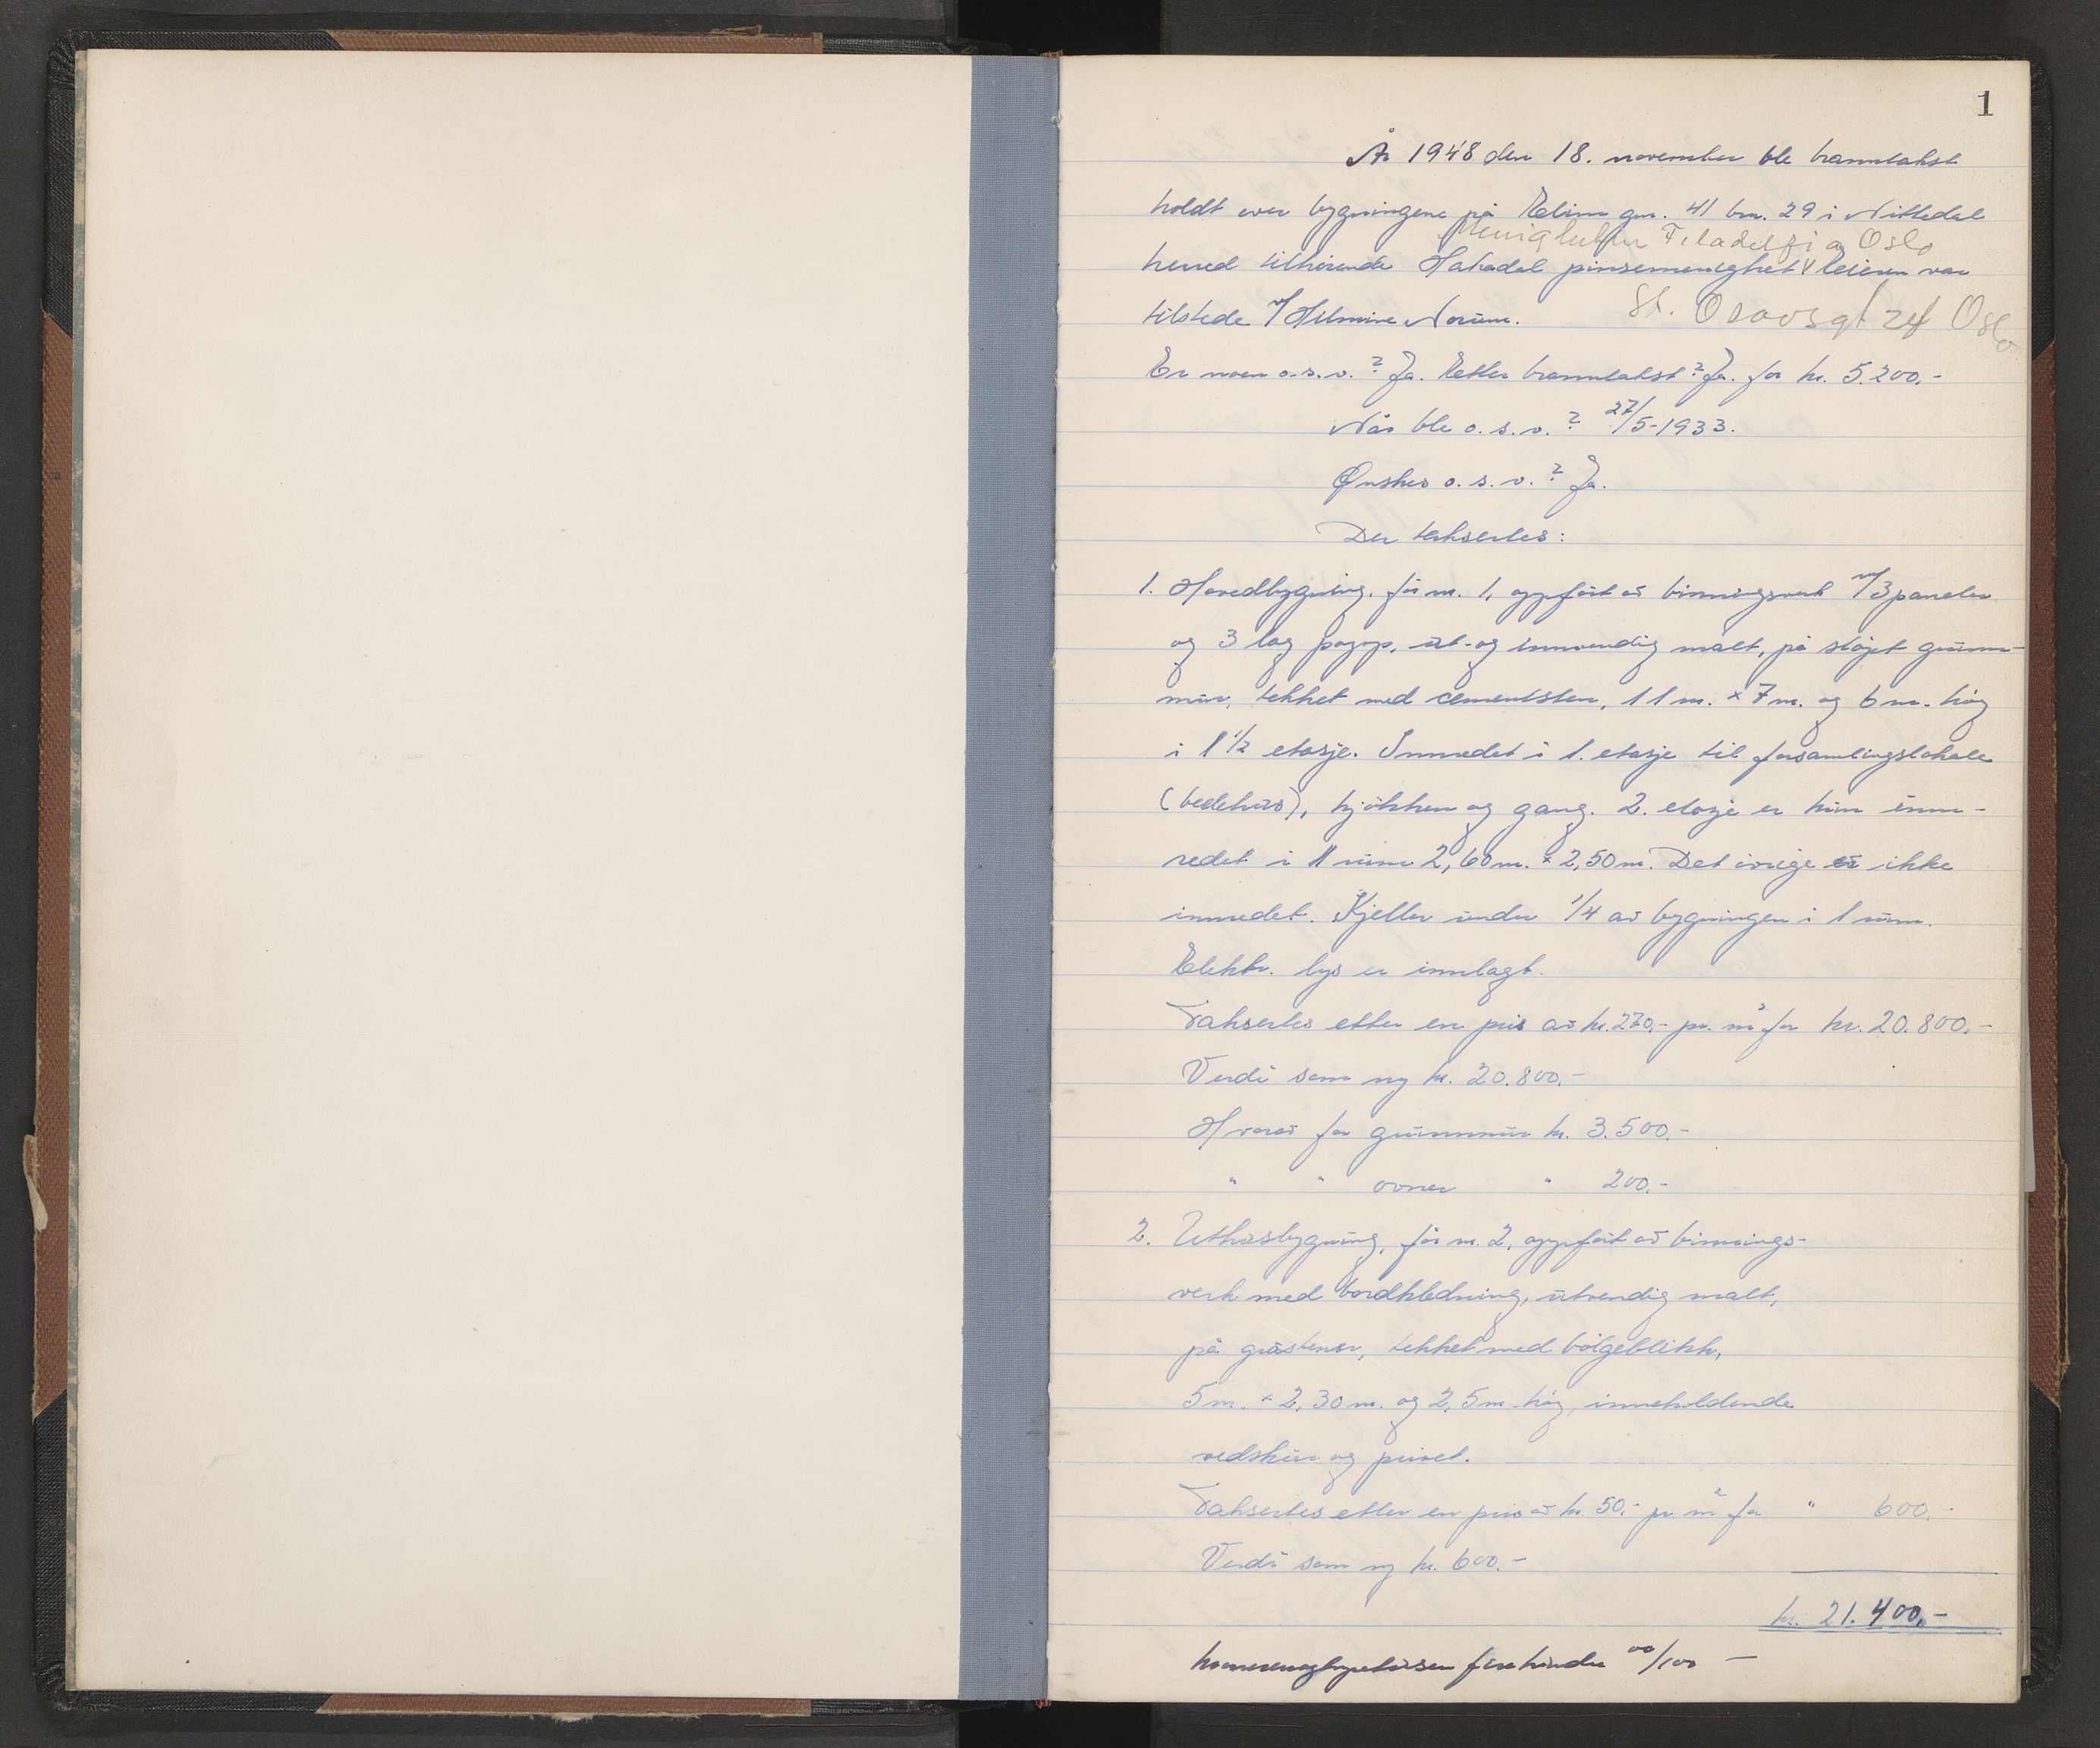 1
År 1948 den 18. november ble branntakst
holdt over bygningene på Elim gnr. 41 bnr. 29 i Nittedal
Menigheten Filadelfia Oslo
herred tilhørende Hakadal pinsemenighet. Eieren var
tilstede v/Hilmine Norum.
St. Olavsgt 24 Oslo
Er noen o.s.v.? Ja. Etter branntakst? Ja. for kr. 5.200,-
Når ble o.s.v.? 27/5-1933.
Ønskes o.s.v.? Ja.
Der taksertes:
1. Hovedbygning, før nr. 1, oppført av binningsverk m/3 paneler
og 3 lag papp, ut- og innvendig malt, på støpt grunn-
mur, tekket med cementsten, 11 m. x 7 m. og 6 m. høg
i 1 1/2 etasje. Innredet i 1. etasje til forsamlingslokale
(bedehus), kjøkken og gang. 2. etasje er kun inn-
redet i 1 rum 2,60 m. x 2,50 m. Det øvrige er ikke
innredet. Kjeller under 1/4 av bygningen i 1 rum.
Elektr. lys er innlagt.
Taksertes etter en pris av kr. 270,- pr. m² for kr. 20.800,-
Verdi som ny kr. 20.800,-
Hvorav for grunnmur kr. 3.500,-
" " ovner " 200,-
2. Uthusbygning, før nr. 2, oppført av binnings-
verk med bordkledning, utvendig malt,
på gråstener, tekket med bølgeblikk,
5 m. x 2,30 m. og 2,5 m. høg, inneholdende
vedskur og privet.
Taksertes etter en pris av kr. 50,- pr. m² for " 600,-
Verdi som ny kr. 600,-
kr. 21.400,-
kroner enogtyvetusen firehundre 00/100 —